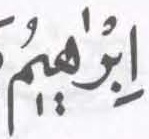 اِبْرٰهٖيمُ